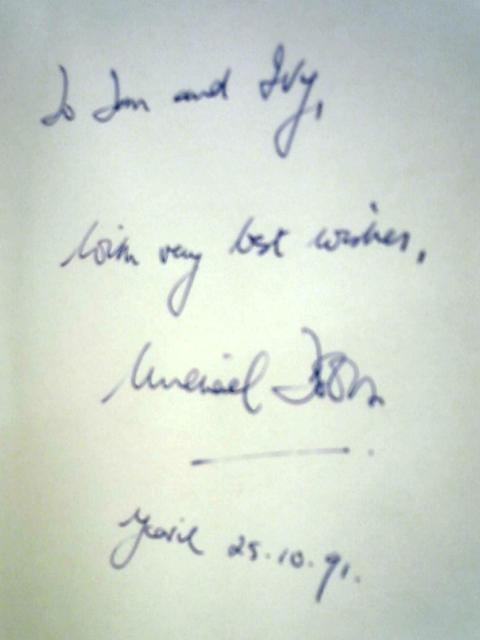 To Jon and Ivy,
With very best wishes,
Michael
25.10.91.